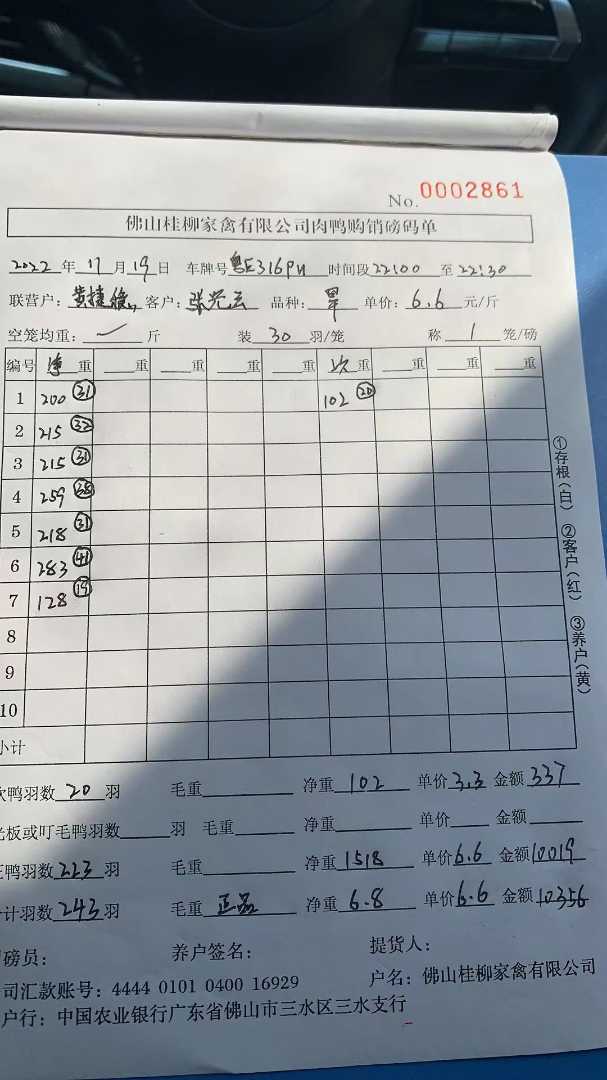 No. 0002861
佛山桂柳家禽有限公司肉鸭购销磅码单
2022 年 11 月 19 日 车牌号 粤E316PU 时间段 22:00 至 22:30
联营户: 黄捷 客户: 张 品种: 旱 单价: 6.6 元/斤
空笼均重: 斤 装 30 羽/笼 称 1 笼/磅
编号 净重 重 重 重 重 次重 重 重 重
1 200 31 102 20
2 215 32
3 215 31
4 259 38
5 218 31
6 283 41
7 128 19
8
9
10
小计
次鸭羽数 20 羽 毛重 净重 102 单价 3.3 金额 337
光板或叮毛鸭羽数 羽 毛重 净重 单价 金额
正鸭羽数 223 羽 毛重 净重 1518 单价 6.6 金额 10019
合计羽数 243 羽 毛重 正品 净重 6.8 单价 6.6 金额 10356
磅员: 养户签名: 提货人:
司汇款账号: 4444 0101 0400 16929 户名: 佛山桂柳家禽有限公司
户行: 中国农业银行广东省佛山市三水区三水支行
①存根(白) ②客户(红) ③养户(黄)